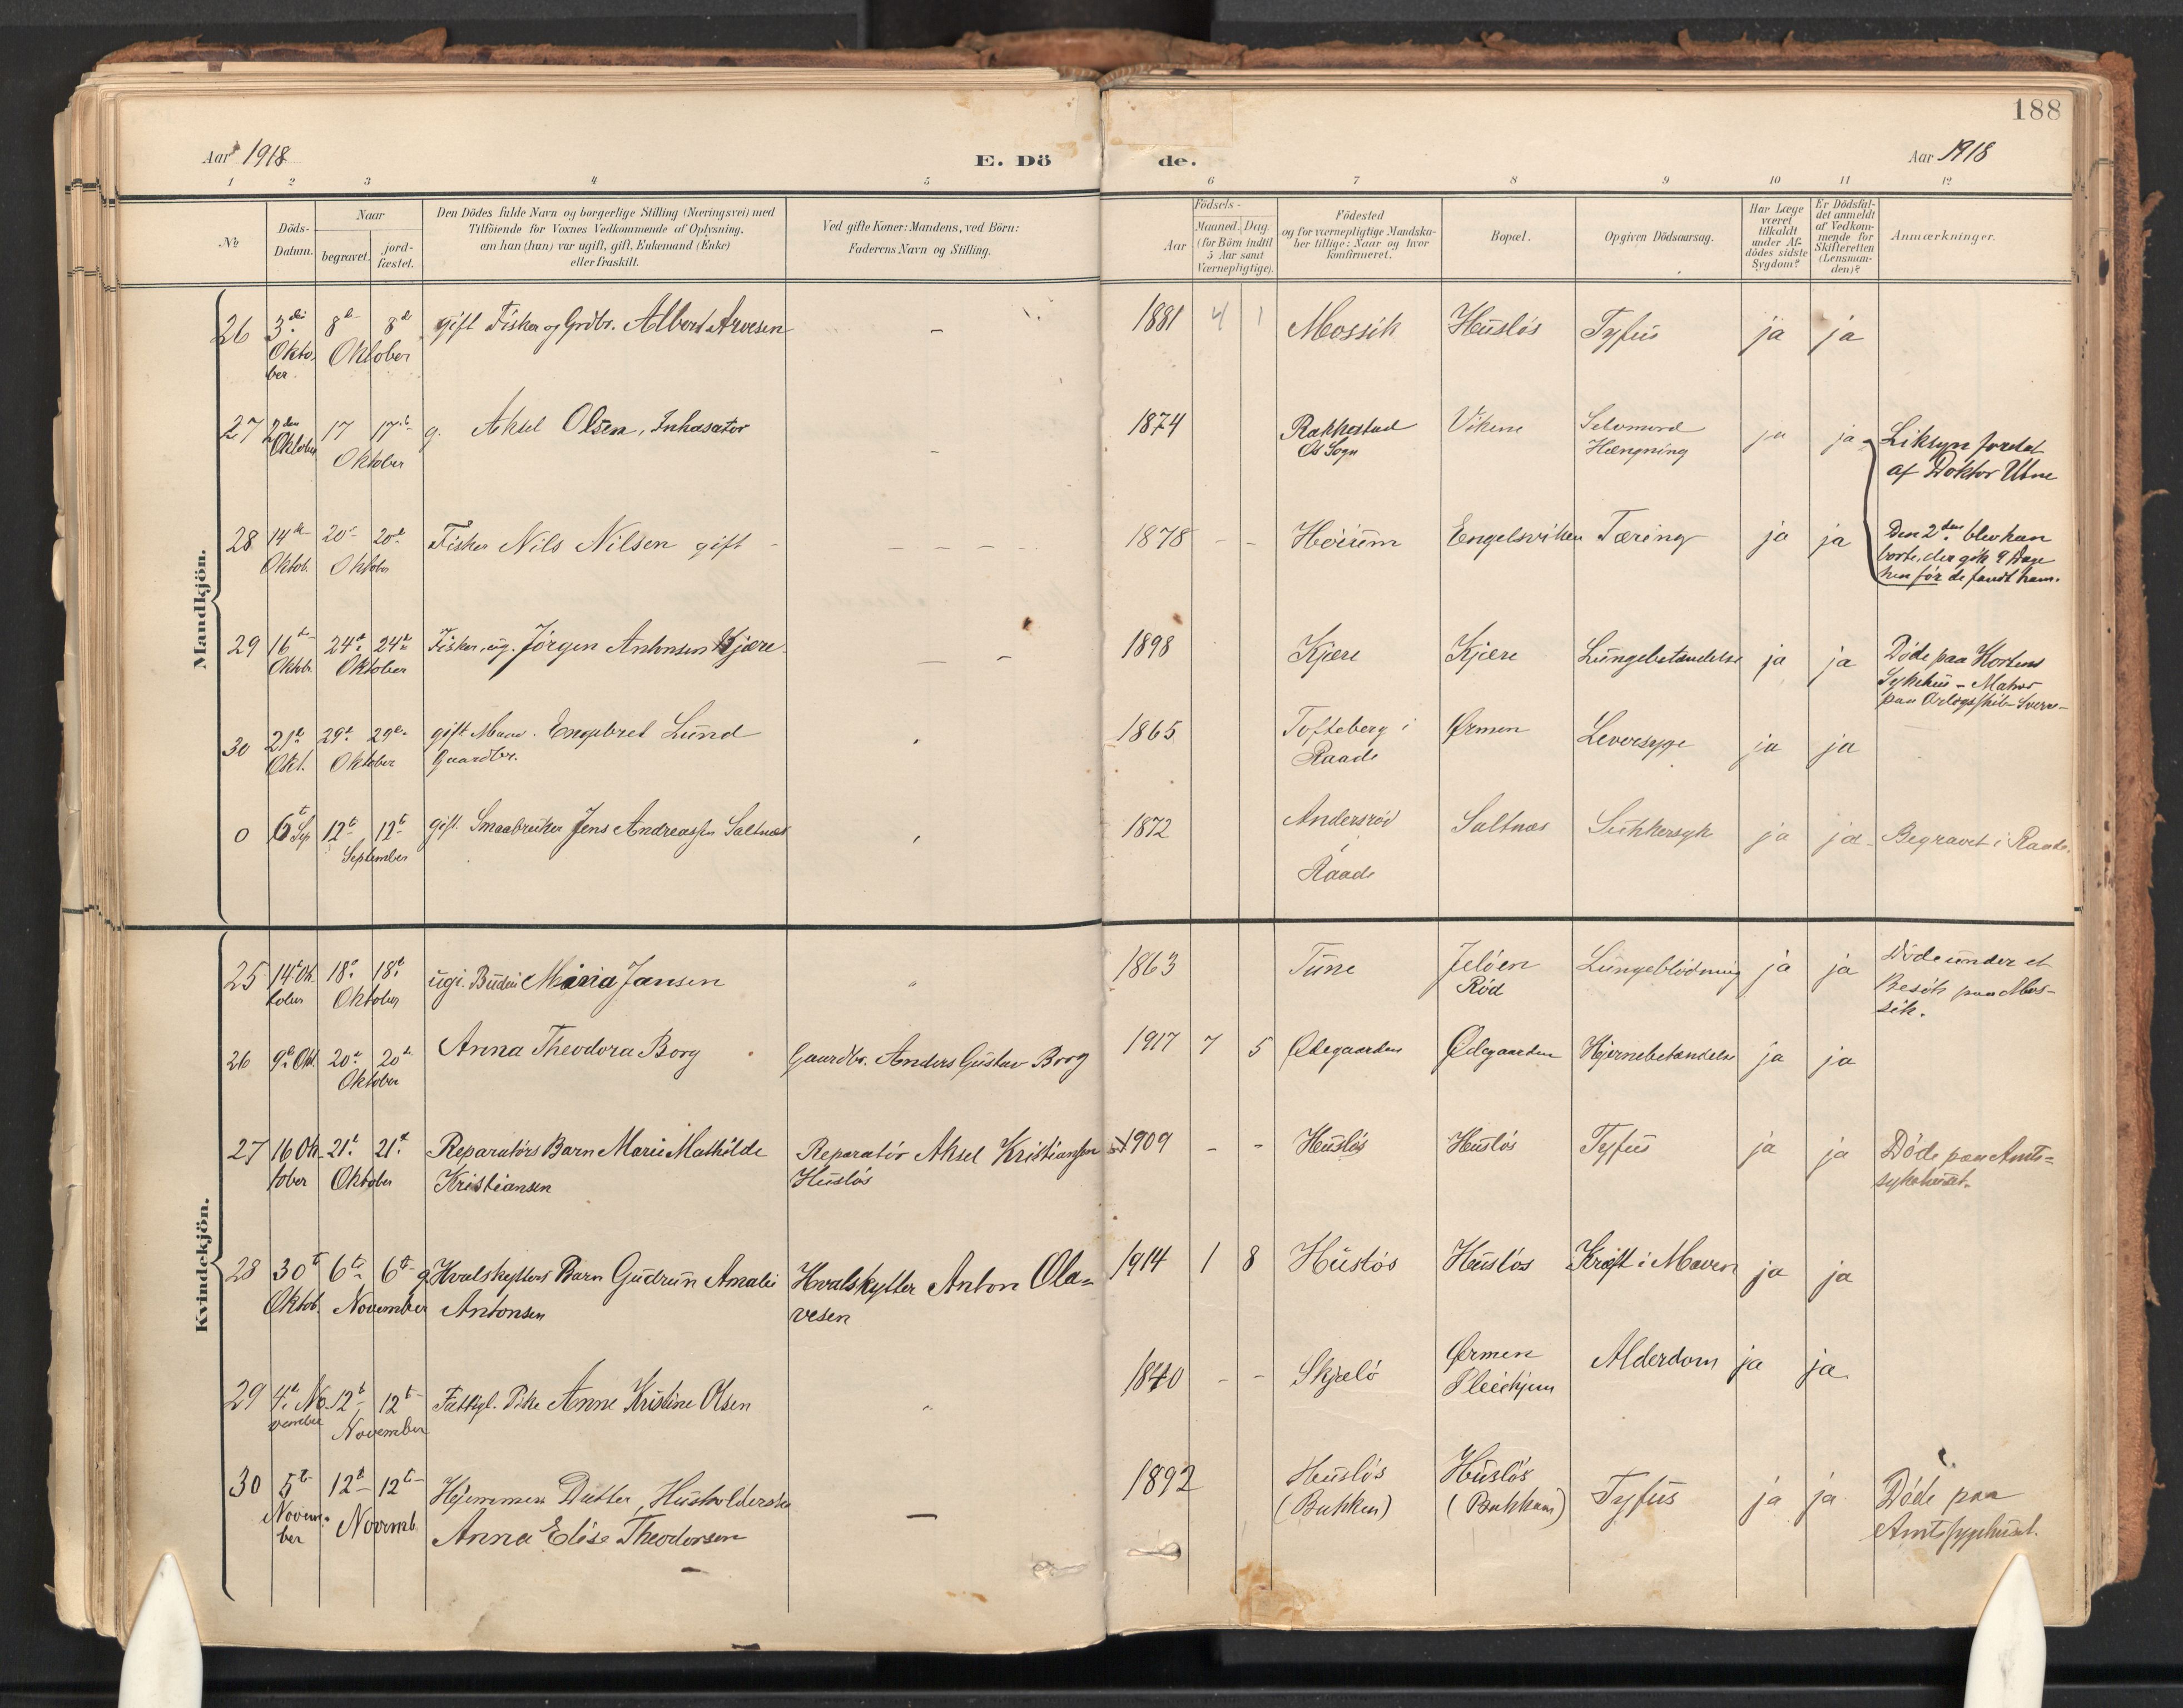 188
Aar 1918
E. Dö
de.
Aar 1918
1 2 3 4 5 6 7 8 9 10 11 12
№
Döds-
Datum.
Naar
begravet.
jord-
fæstet.
Den Dödes fulde Navn og borgerlige Stilling (Næringsvei) med
Tilföiende for Voxnes Vedkommende af Oplysning,
om han (hun) var ugift, gift, Enkemand (Enke)
eller fraskilt.
Ved gifte Koner: Mandens, ved Börn:
Faderens Navn og Stilling.
Födsels-
Aar
Maaned. Dag.
(for Börn indtil
5 Aar samt
Værnepligtige).
Födested
og for værnepligtige Mandska-
ber tillige: Naar og hvor
konfirmeret.
Bopæl.
Opgiven Dödsaarsag.
Har Læge
været
tilkaldt
under Af-
dödes sidste
Sygdom?
Er Dödsfal-
det anmeldt
af Vedkom-
mende for
Skifteretten
(Lensman-
den)?
Anmærkninger.
Mandkjön.
26 3die 8de 8de gift Fisker og Grdbr. Albert Arvesen – 1881 4 1 Mossik Husløs Tyfus ja ja
Okto- Oktober
ber
27 2den 17 17de g. Aksel Olsen, Inkasator – 1874 Rakkestad Vikene Selvmord ja ja Liksyn
Oktober Oktober Os Sogn Hængning af Doktor Utne
28 14de 20de 20de Fisker Nils Nilsen gift – – – – 1878 – – Høium Engelsviken Tæring ja ja Den 2den blev han
Oktob. Oktober borte, der gik 9 Dage
hen før de fandt ham.
29 16de 24de 24de Fisker, ug. Jörgen Antonsen Kjære – – 1898 Kjære Kjære Lungebetændelse ja ja Døde paa Hortens
Oktob. Oktober Sykehus – Matros
paa Orlogsskib
30 21de 29de 29de gift Engebret Lund 1865 Tofteberg i Ørmen Leversyge ja ja
Okt. Oktober Gaardbr. Raade
0 6t Sep 12t 12t gift. Smaabruker Jens Andreassen Saltnæs 1872 Andersrød Saltnæs Sukkersyk ja ja Begravet i Raade.
September i
Raade
Kvindekjön.
25 14de Ok- 18de 18de ugi. Budeie Maria Jansen " 1863 Tune Jeløen Lungeblødning ja ja Døde under et
tober Oktober Rød Besøk paa Mos-
sik.
26 9de Okt. 20de 20de Anna Theodora Borg Gaardbr. Anders Gustav Borg 1917 7 5 Ødegaarden Ødegaarden Hjernebetændelse ja ja
Oktober
27 16 Ok- 21de 21de Reparatørs Barn Marie Mathilde Reparatør Aksel Kristiansen 1909 – – Husløs Husløs Tyfus ja ja Døde paa Amts-
tober Oktober Kristiansen Husløs sykehuset.
28 30t 6te 6te Hvalskytters Barn Gudrun Amalie Hvalskytter Anton Ola- 1914 1 8 Husløs Husløs Kræft i Maven ja ja
Oktob. November Antonsen vesen
29 4de No- 12t 12t Fattigl. Pike Anne Kristine Olsen " 1840 – – Skjælø Ørmen Alderdom ja ja
vember November Pleiehjem
30 5t 12t 12t Hjemmev. Datter, Husholderske – 1892 Husløs Husløs Tyfus ja ja Døde paa
Novem- Novemb. Anna Elise Theodorsen (Bakken) (Bakken) Amtssygehuset.
ber